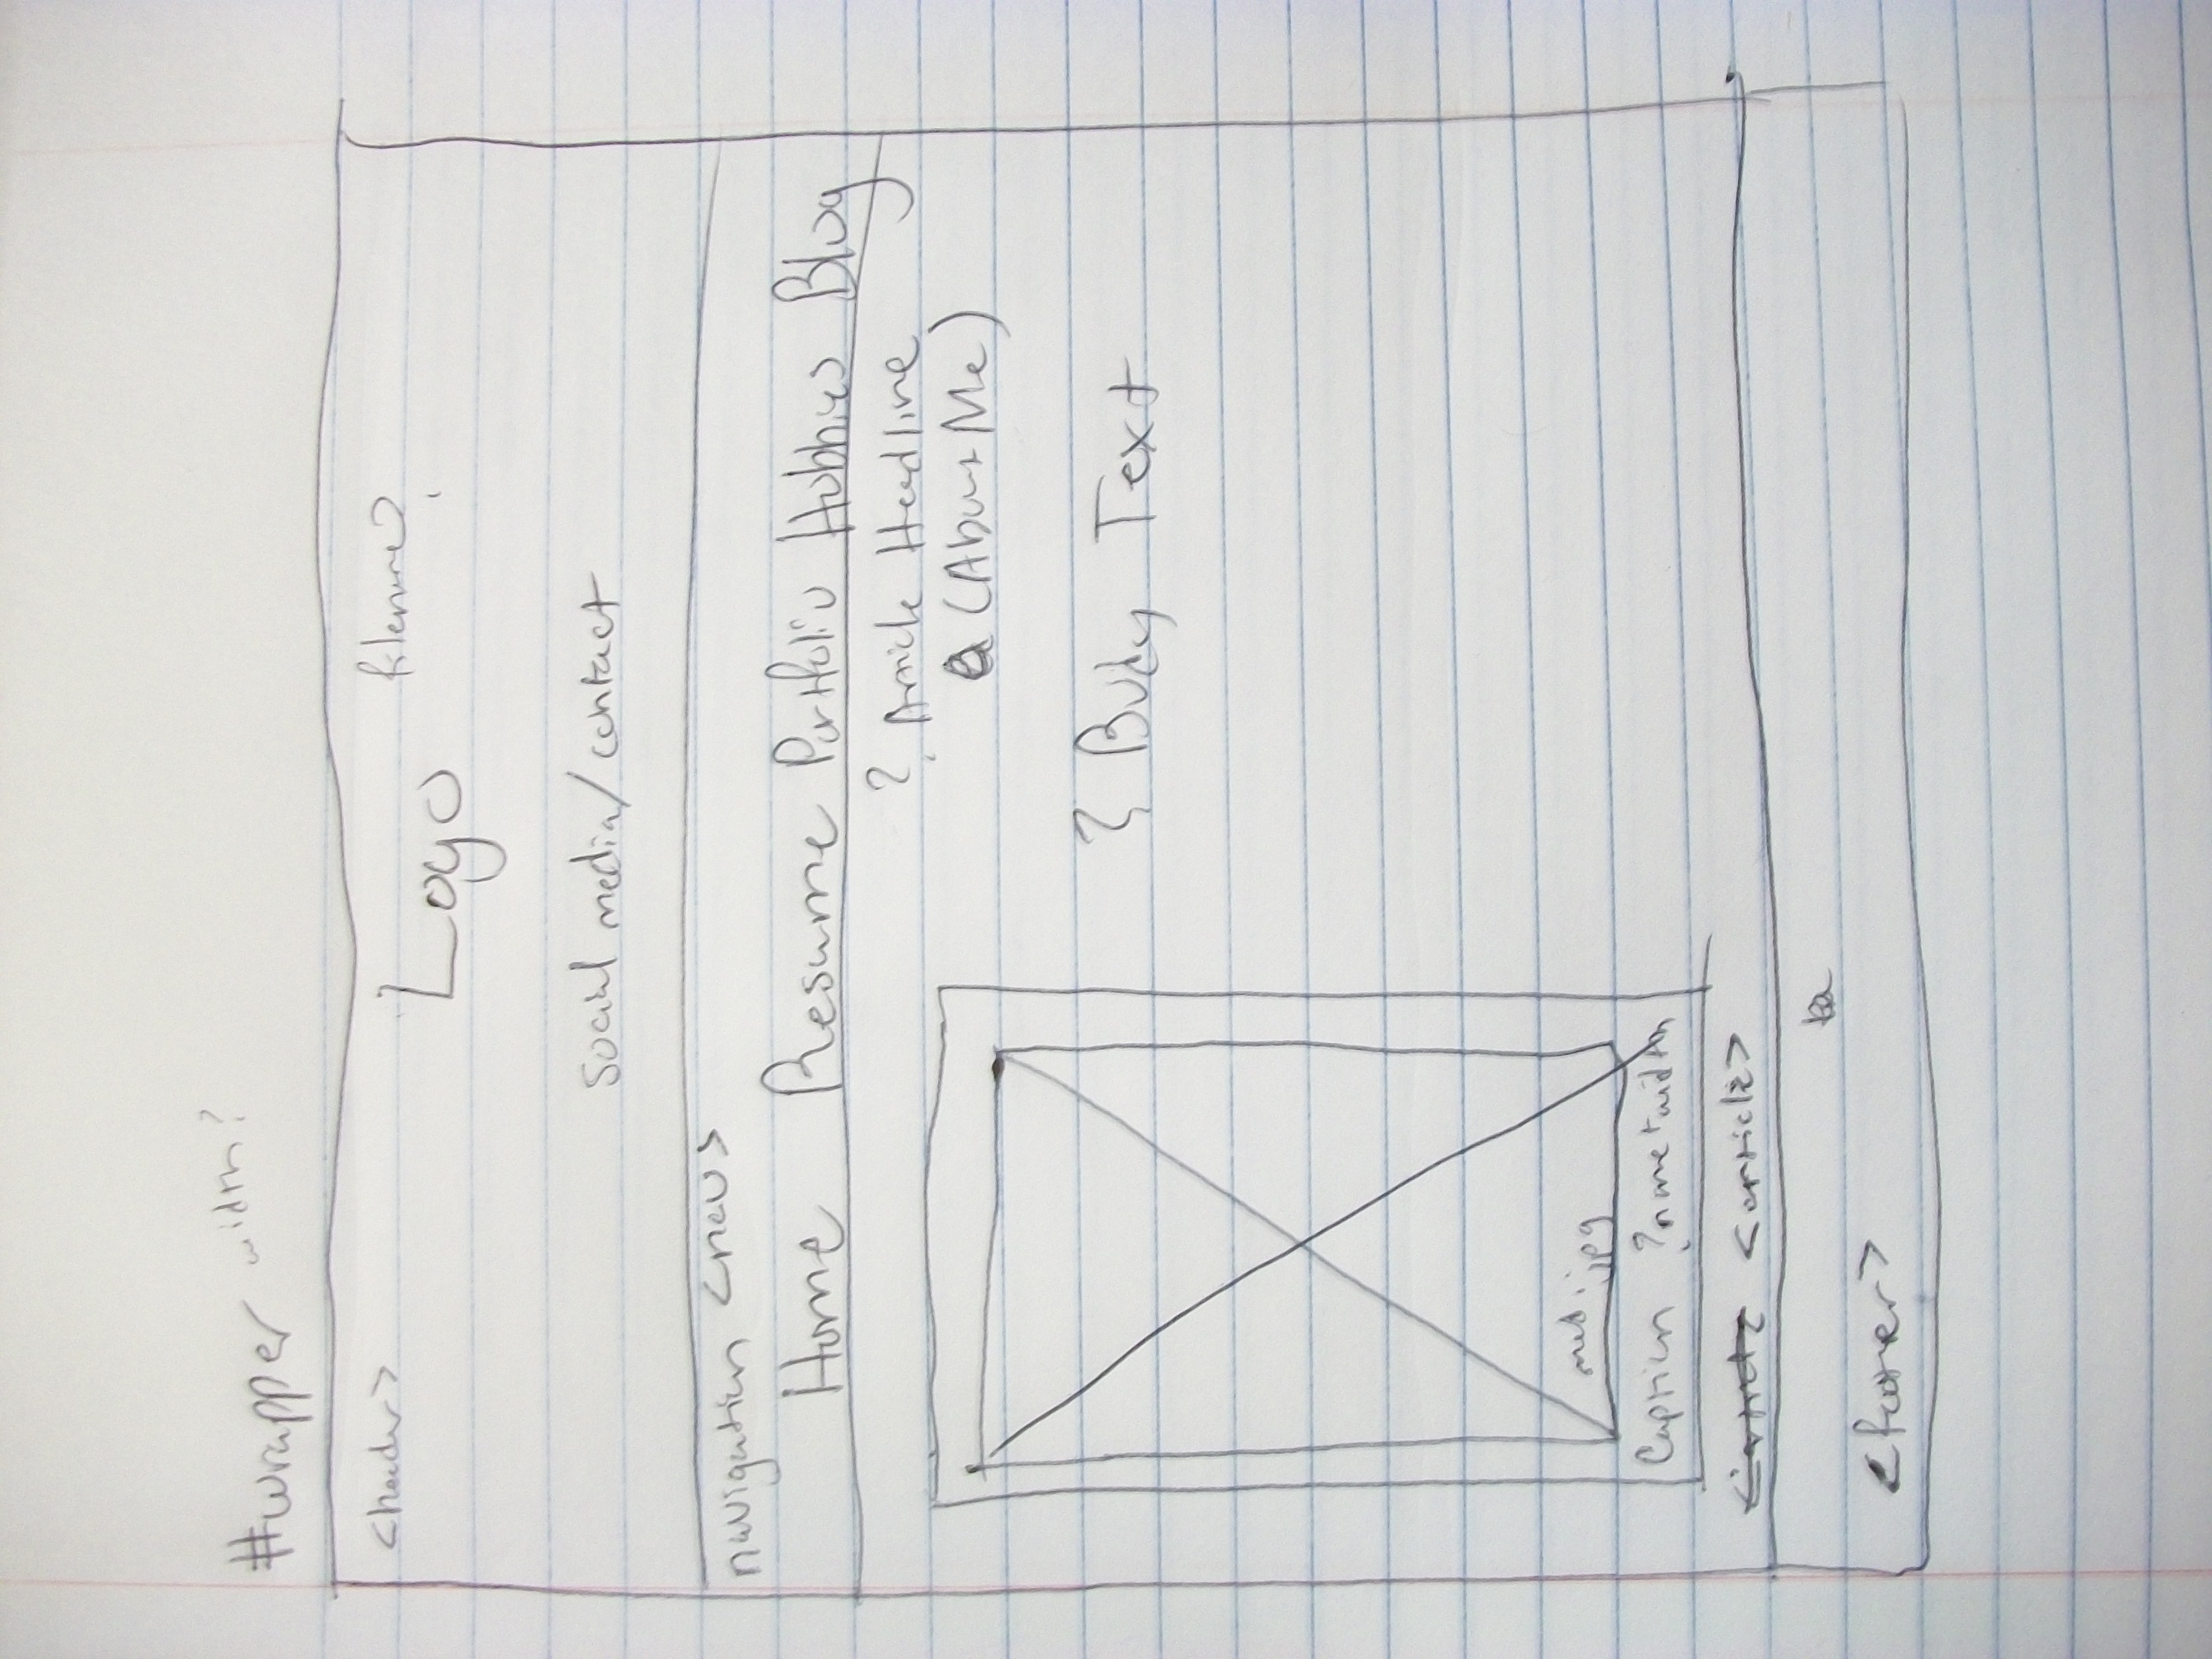 #wrapper width?
<header>
Logo filename?
Social media/contact
navigation <nav>
Home Resume Portfolio Hobbies Blog
? Article Headline
(About Me)
? Body Text
.jpg
Caption ? name + width
<article>
<footer>